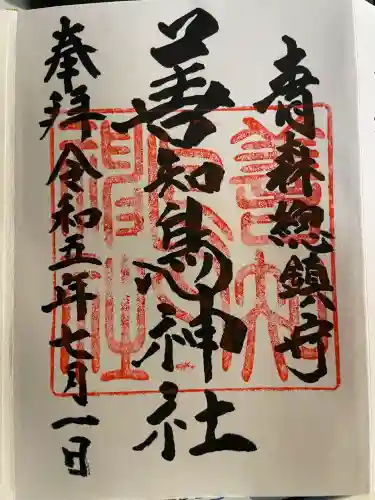 青森總鎮守
善知鳥神社
奉拝 令和五年七月一日